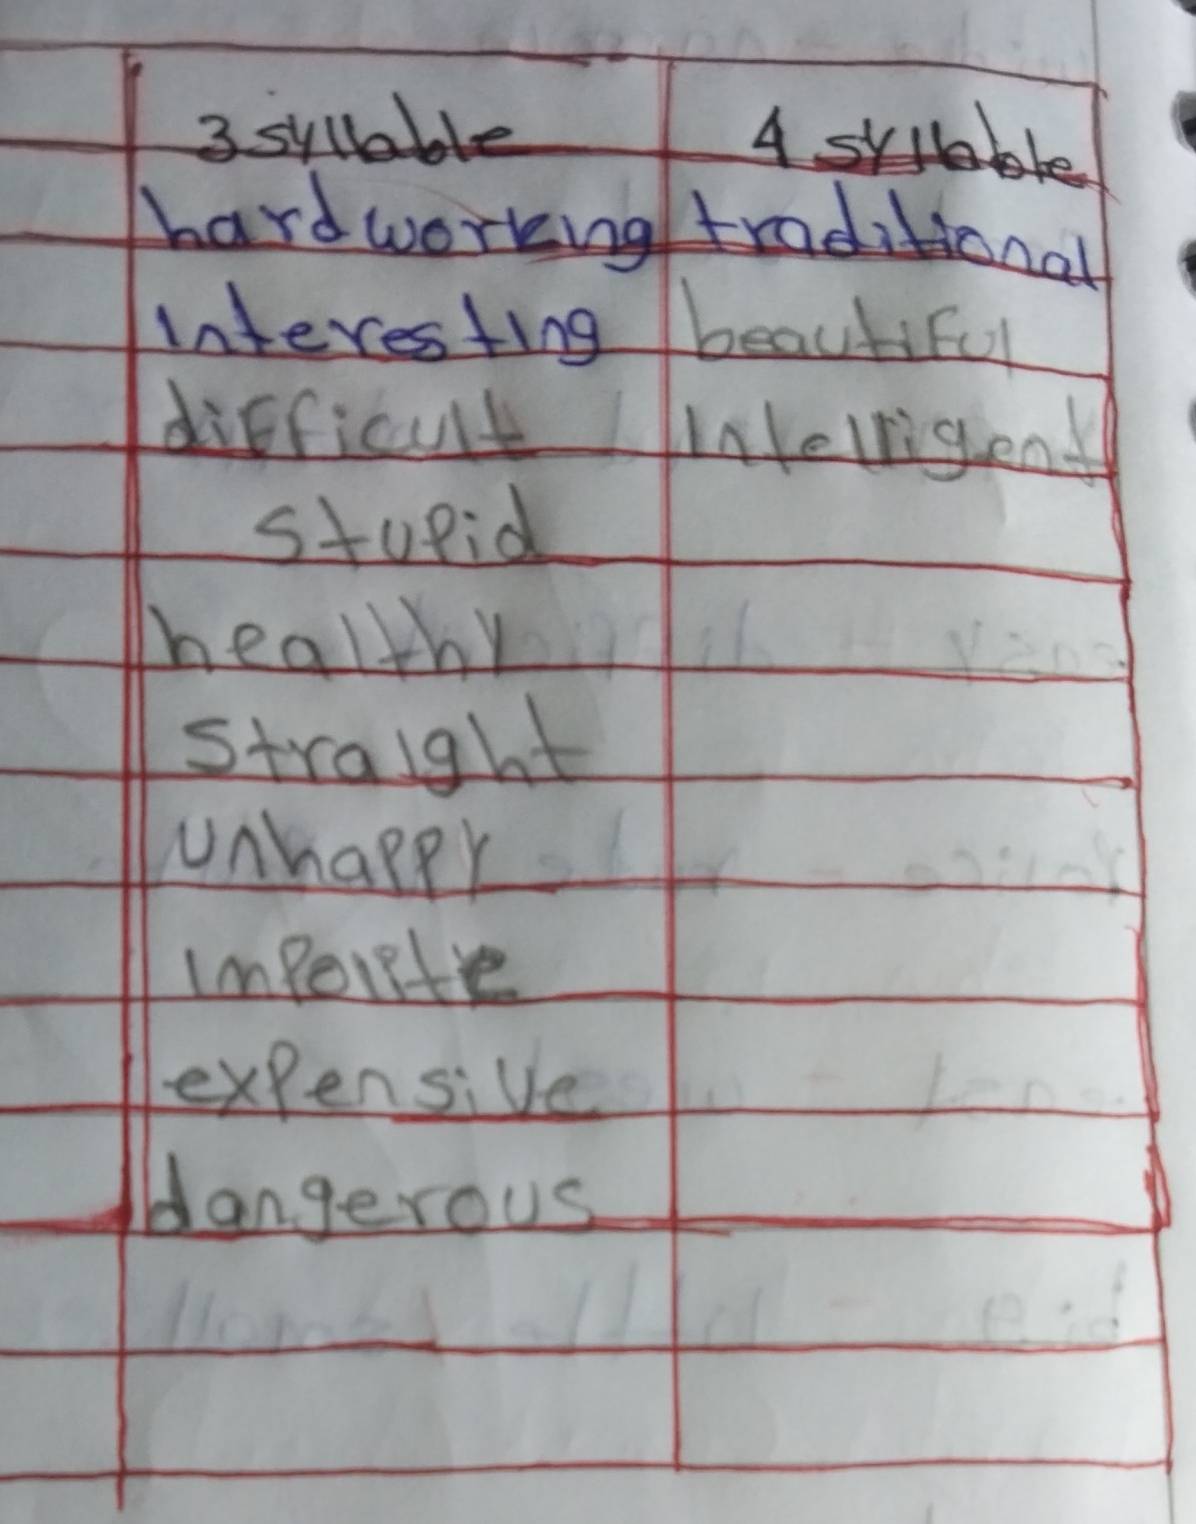 3 syllable 4 syllable
hardworking traditional
interesting beautiful
difficult intelligent
stupid
healthy
straight
unhappy
impolite
expensive
dangerous